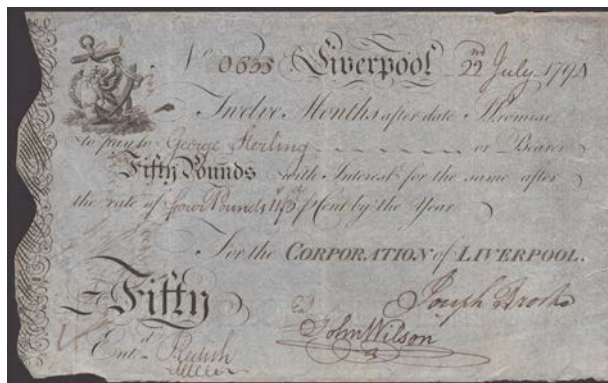 No 0635 Liverpool 22nd July 1794
Twelve Months after date I Promise
to pay to George Sterling or Bearer
Fifty Pounds with Interest for the same after
the rate of four Pounds 11/3d p Cent by the Year
For the CORPORATION of LIVERPOOL.
Fifty Joseph Brooks
Ex John Wilson
Entd